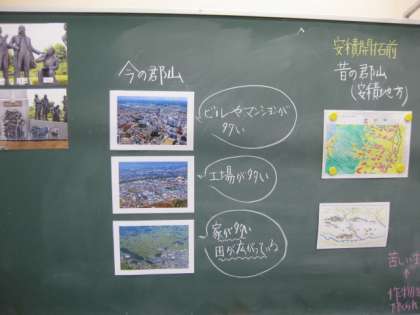 今の郡山
ビルやマンションが
多い
工場が多い
家が多い
田が広がっている
安積開拓前
昔の郡山
(安積地方)
苦しい生
作物